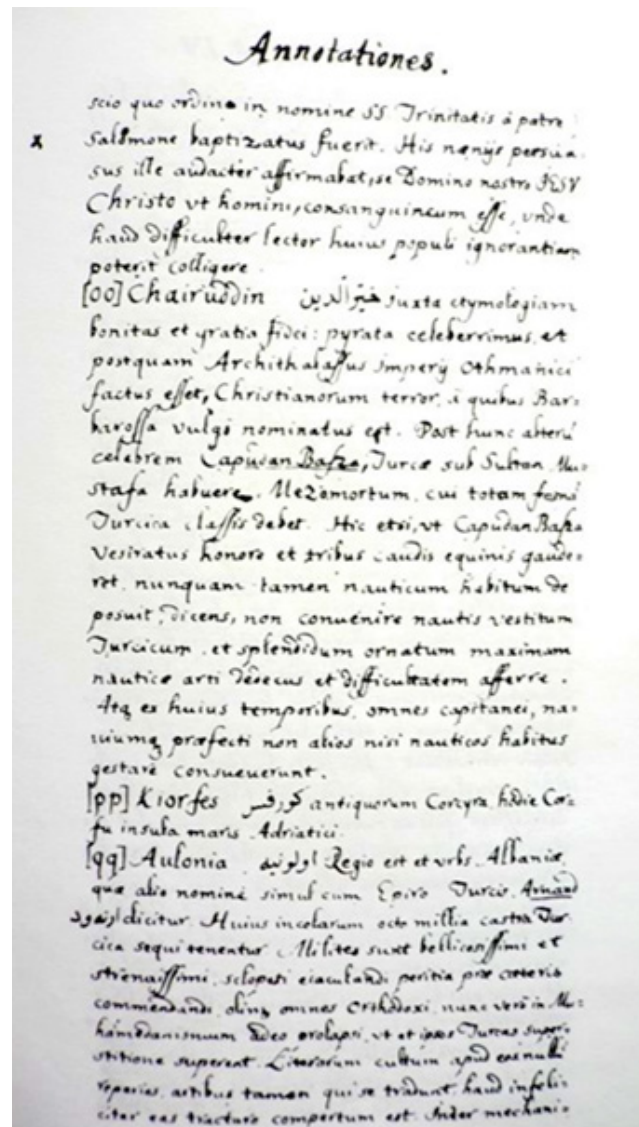 Annotationes.
scio quo ordine in nomine SS Trinitatis à patre
x Salomone baptizatus fuerit. His nænijs persua-
sus ille audacter affirmabat, se Domino nostro IESV
Christo vt homini, consanguineum esse, vnde
haud difficulter lector huius populi ignorantiam
poterit colligere.
[oo] Chairuddin خير الدين juxta etymologiam
bonitas et gratia fidei: pyrata celeberrimus, et
postquam Archithalassus imperij Othmanici
factus esset, Christianorum terror, à quibus Bar-
barossa vulgò nominatus est. Post hunc alterū
celebrem Capudan Basza, Turcæ sub Sultan Mu-
stafa habuere. Mezomortum, cui totam
Turcica classis debet. Hic etsi, vt Capudan Basza
Vesiratus honore et tribus caudis equinis gaude-
ret, nunquam tamen nauticum habitum de
posuit, dicens, non convenire nautis vestitum
Turcicum, et splendidum ornatum maximam
nauticæ arti dedecus et difficultatem afferre.
Atq ex huius temporibus, omnes capitanei, na-
uiumq præfecti non alios nisi nauticos habitus
gestare consueuerunt.
[pp] Kiorfes كورفس antiquorum Corcyra, hodie Cor-
fu insula maris Adriatici.
[qq] Aulonia اولونيه Regio est et vrbs Albaniæ,
quæ alio nomine simul cum Epiro Turcis Arnaud
ارناود dicitur. Huius incolarum octo millia castra Tur
cica sequi tenentur. Milites sunt bellicosissimi et
strenuissimi, sclopeti eiaculandi peritia præ cæteris
commendandi, olim omnes Orthodoxi, nunc verò in Mu-
hamedanismum adeo prolapsi, vt et ipsos Turcas super-
stitione superent. Literarum cultum apud eos nulli
reperias, artibus tamen qui se tradunt, haud infeli-
citer eas tractare compertum est. Inter mechani-